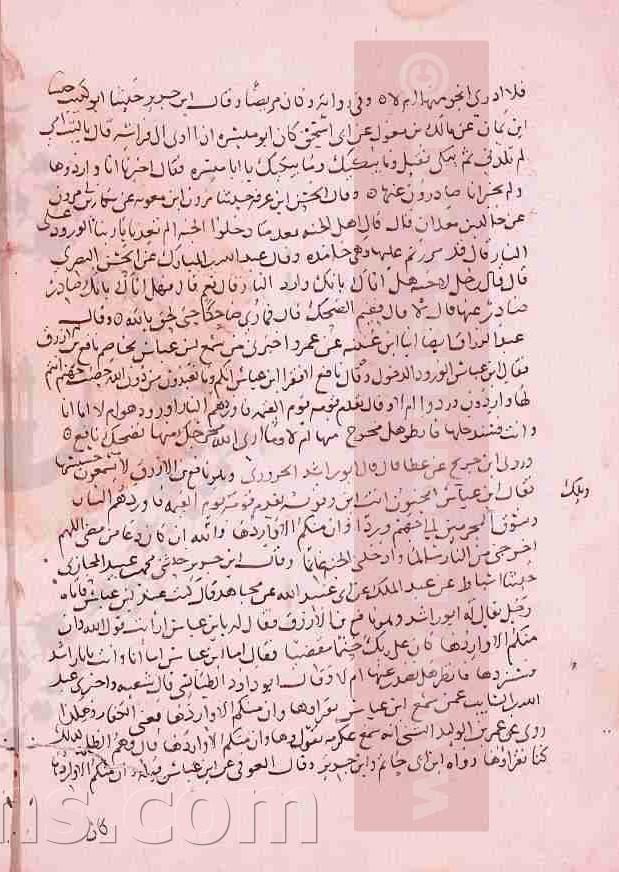 فلا ادري انجو منها ام لا ٥ وفي رواية وكان مريضا وقال ابن جرير حدثنا ابو كريب حدثنا
ابن يمان عن مالك بن مغول عن ابي اسحق كان ابو ميسرة اذا اوى الى فراشه قال يا ليت امي
لم تلدني ثم يبكي فقيل وما يبكيك يا ابا ميسرة فقال اخبرنا انا واردوها
ولم نخبر انا صادرون عنها ٥ وقال الحسن ابن عرفة حدثنا مروان ابن معوية عن بكار بن ابي مروان
عن خالد بن معدان قال قال اهل الجنة بعد ما دخلوا الجنة الم يعدنا ربنا الورود على
النار قال قد مررتم عليها وهي خامدة وقال عبد الله بن المبارك عن الحسن البصري
قال قال رجل لاخيه هل اتاك بانك وارد النار قال نعم قال فهل اتاك بانك صادر
عنها قال لا قال ففيم الضحك قال فما رئي ضاحكا حتى لحق بالله ٥ وقال
عبد الرزاق ايضا انا ابن عيينة عن عمرو اخبرني من سمع ابن عباس يخاصم نافع بن الازرق
فقال ابن عباس الورود الدخول وقال نافع لا فقرا ابن عباس انكم وما تعبدون من دون الله حصب جهنم انتم
لها واردون وردوا ام لا وقال يقدم قومه يوم القيمة فاوردهم النار اورود هو ام لا اما انا
وانت فسندخلها فانظر هل نخرج منها ام لا وما ارى الله مخرجك منها فضحك نافع ٥
وروى ابن جريج عن عطا قال قال ابو راشد الحروري وهو نافع بن الازرق لا يسمعون حسيسها
فقال ابن عباس ويلك امجنون انت اين قوله يقدم قومه يوم القيمة فاوردهم النار
ونسوق المجرمين الى جهنم وردا وان منكم الا واردها والله ان كان دعا من مضى اللهم
اخرجني من النار سالما وادخلني الجنة غانما وقال ابن جرير حدثني محمد بن عبيد المحاربي
حدثنا اسباط عن عبد الملك عن عبيد الله عن مجاهد قال كنت عند ابن عباس فاتاه
رجل يقال له ابو راشد وهو نافع بن الازرق فقال له يا ابن عباس ارايت قول الله وان
منكم الا واردها كان على ربك حتما مقضيا فقال اما ابن عباس اما انا وانت يا ابا راشد
فسنردها فانظر هل نصدر عنها ام لا وقال ابو داود الطيالسي قال شعبة واخبرني عبد
الله بن السايب عمن سمع ابن عباس يقراوها وان منكم الا واردها يعني الكفار وهكذا
روى عن عمر بن الوليد الشني انه سمع عكرمة يقراوها وان منكم الا واردها قال وهم الظلمة كذلك
كنا نقراوها رواه ابن ابي حاتم وابن جرير وقال العوفي عن ابن عباس قوله وان منكم الا واردها
كان
ms.com